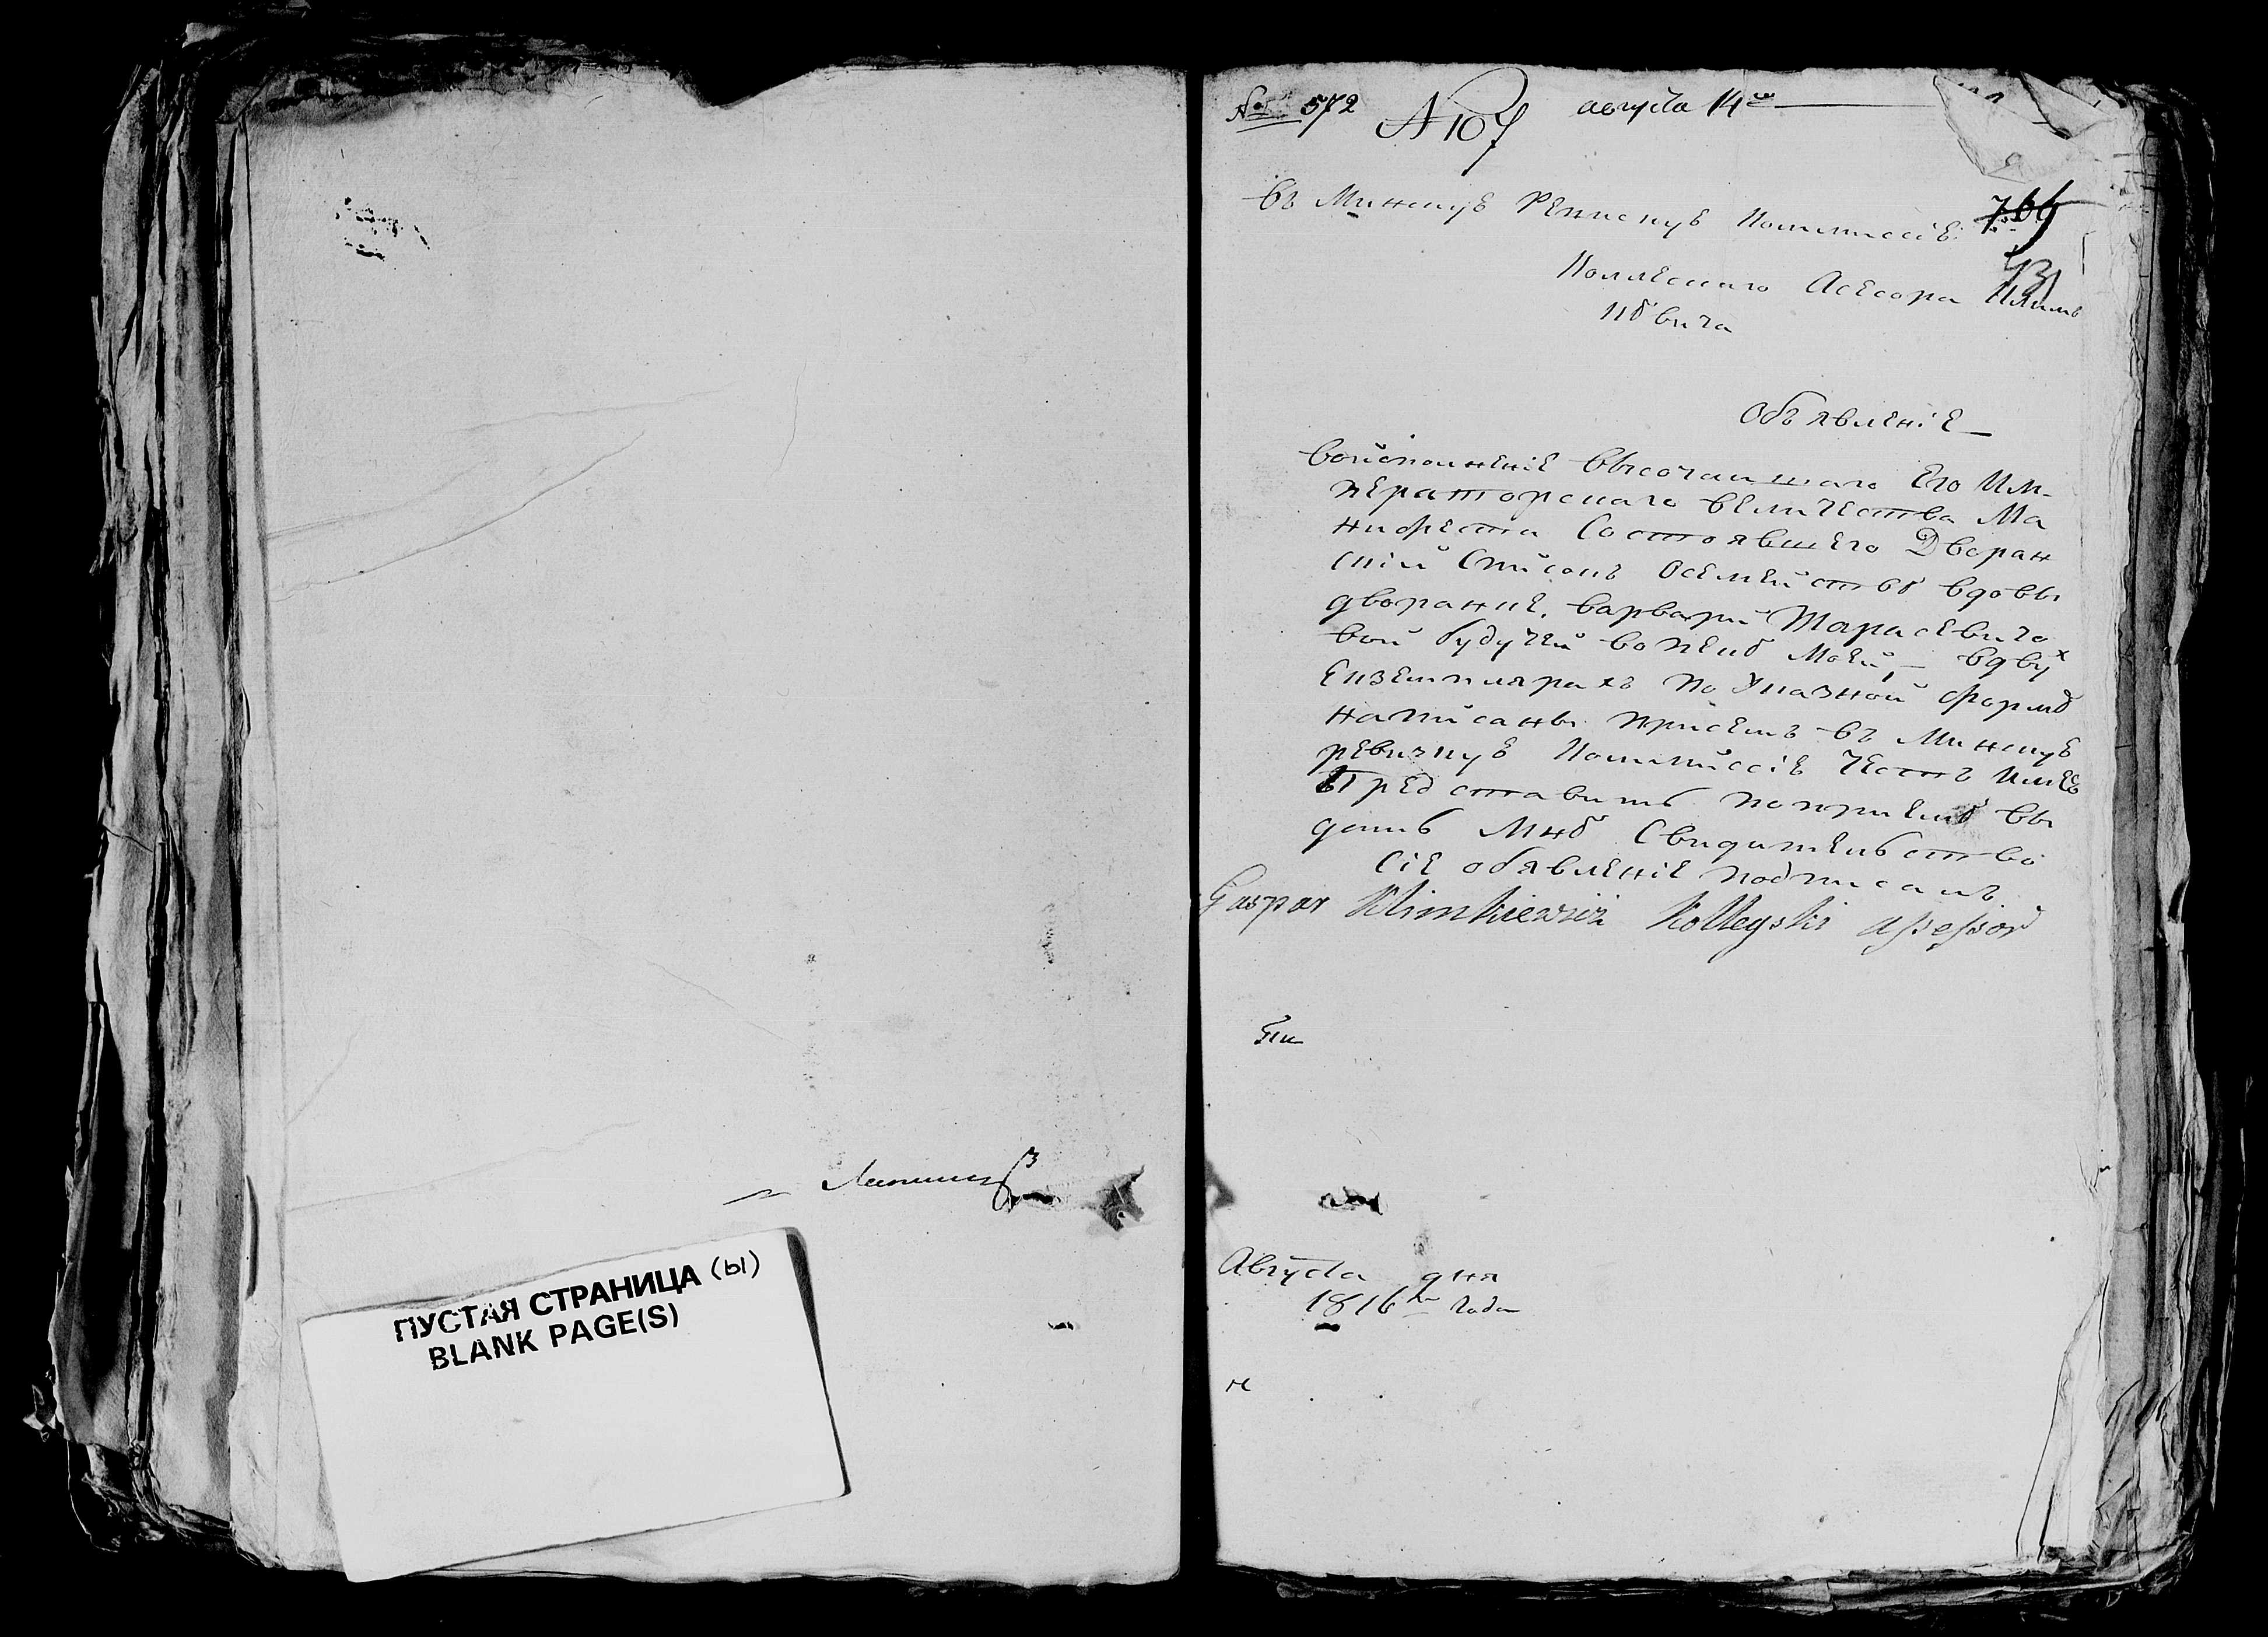 ПУСТАЯ СТРАНИЦА (ы)
BLANK PAGE(S)
№ 572 N 107 августа 14
въ Минскуѣ Коммиссіѣ
Коллескаго Асесора Клим
кѣвича
Объявленіе
войсполненіе высочаишаго Его Им-
ператорскаго величества Ма
нифеста Состоявшего Дворан
скій Списокъ Осемействѣ вдовы
дворанке варвары Тарасевичо
вой будучей вопекѣ Моей, вдвух
Екземплярахъ по Указной формѣ
написаны присемъ въ Минскуѣ
ревизкуѣ Коммиссіѣ Честъ Имею
Представить поприемѣ вы
дать Мнѣ Свидительство
Сіе обявленіе подписалъ
Gaspar Klimkiewicz Kolleyski assessor
Августа дня
1816 года